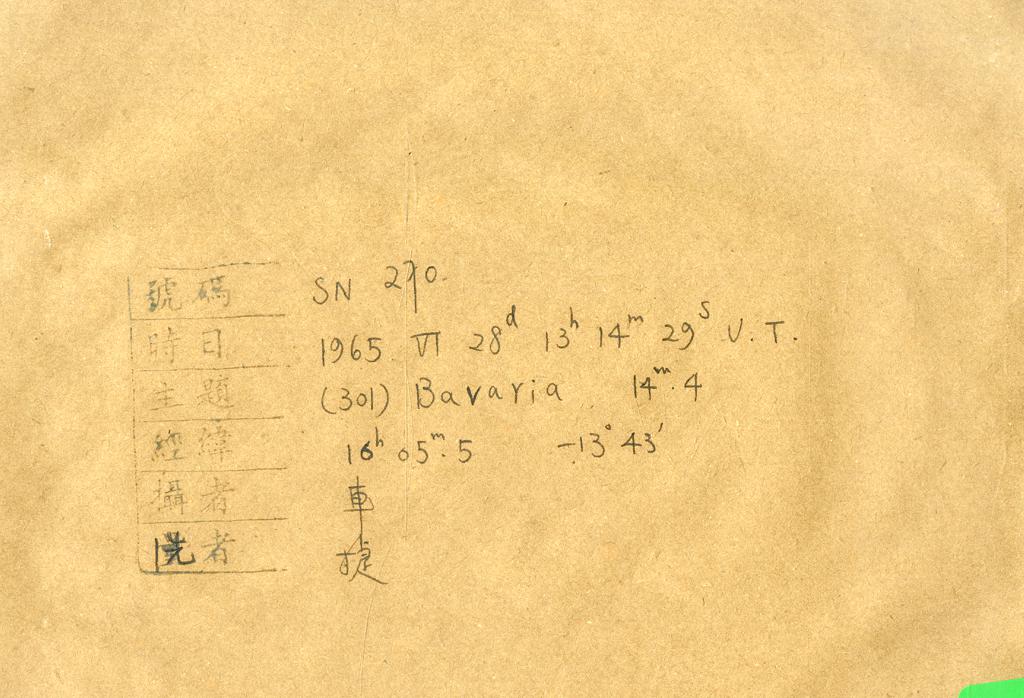 號碼 SN 290.
時日 1965 VI 28d 13h 14m 29s U.T.
主題 (301) Bavaria 14m.4
經緯 16h 05m.5 -13° 43′
攝者 車
洗者 捷